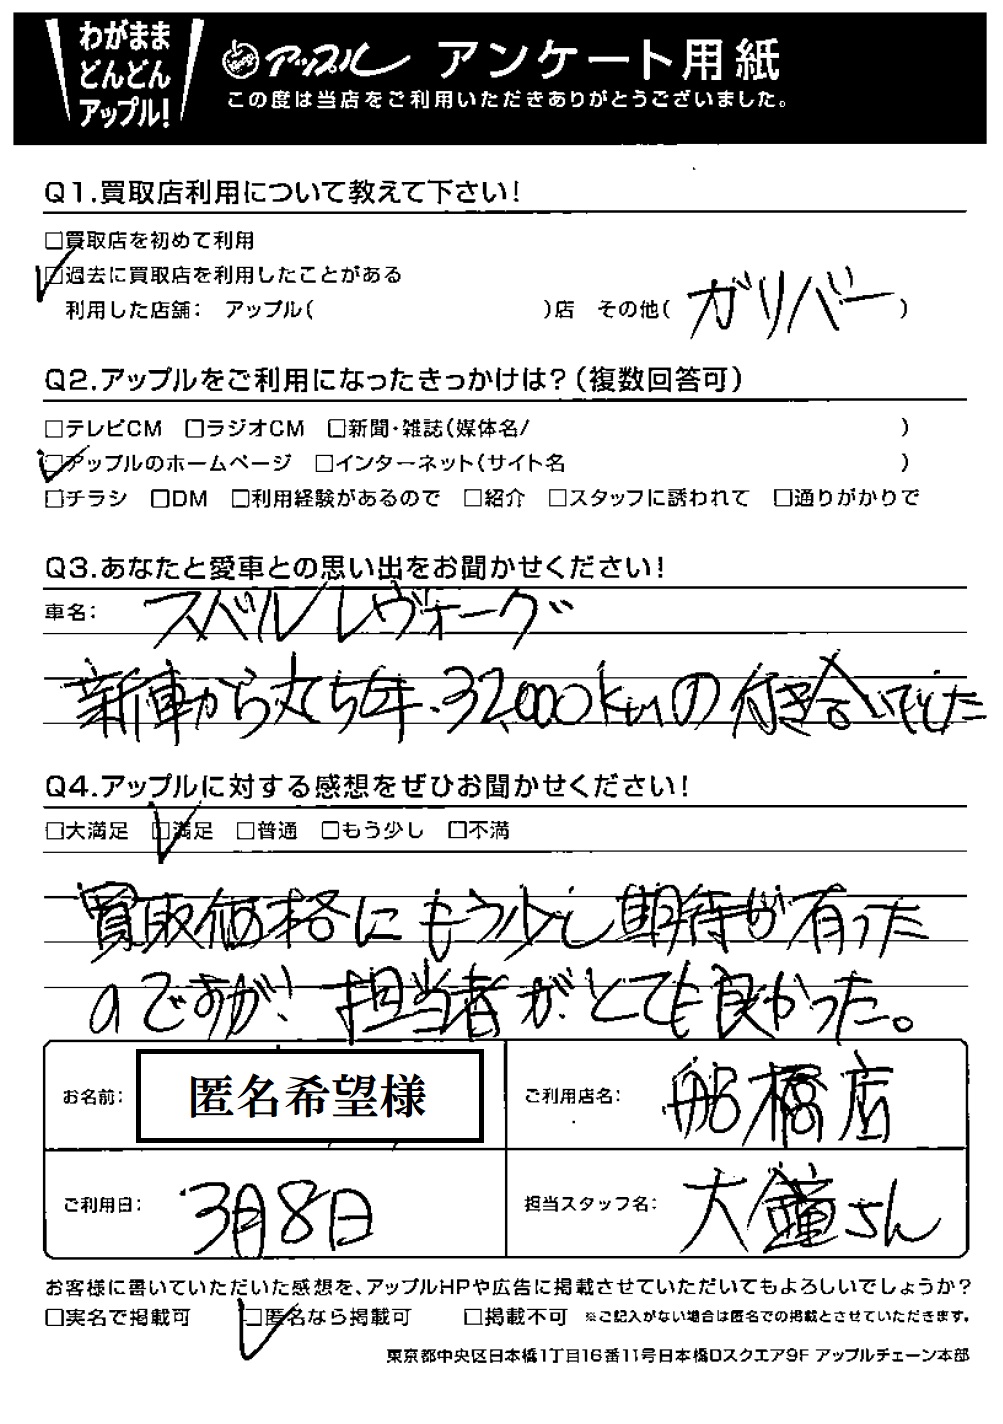 わがまま
どんどん
アップル!
アップル アンケート用紙
この度は当店をご利用いただきありがとうございました。
Q1.買取店利用について教えて下さい!
□買取店を初めて利用
☑過去に買取店を利用したことがある
利用した店舗: アップル( )店 その他(ガリバー)
Q2.アップルをご利用になったきっかけは?(複数回答可)
□テレビCM □ラジオCM □新聞・雑誌(媒体名/ )
☑アップルのホームページ □インターネット(サイト名 )
□チラシ □DM □利用経験があるので □紹介 □スタッフに誘われて □通りがかりで
Q3.あなたと愛車との思い出をお聞かせください!
車名: スバルレヴォーグ
新車から丸5年、32,000kmの付き合いでした
Q4.アップルに対する感想をぜひお聞かせください!
□大満足 ☑満足 □普通 □もう少し □不満
買取価格にもう少し期待が有った
のですが! 担当者がとても良かった。
お名前: 匿名希望様
ご利用店名: 船橋店
ご利用日: 3月8日
担当スタッフ名: 大鐘さん
お客様に書いていただいた感想を、アップルHPや広告に掲載させていただいてもよろしいでしょうか?
□実名で掲載可 ☑匿名なら掲載可 □掲載不可 ※ご記入がない場合は匿名での掲載とさせていただきます。
東京都中央区日本橋1丁目16番11号日本橋Dスクエア9F アップルチェーン本部